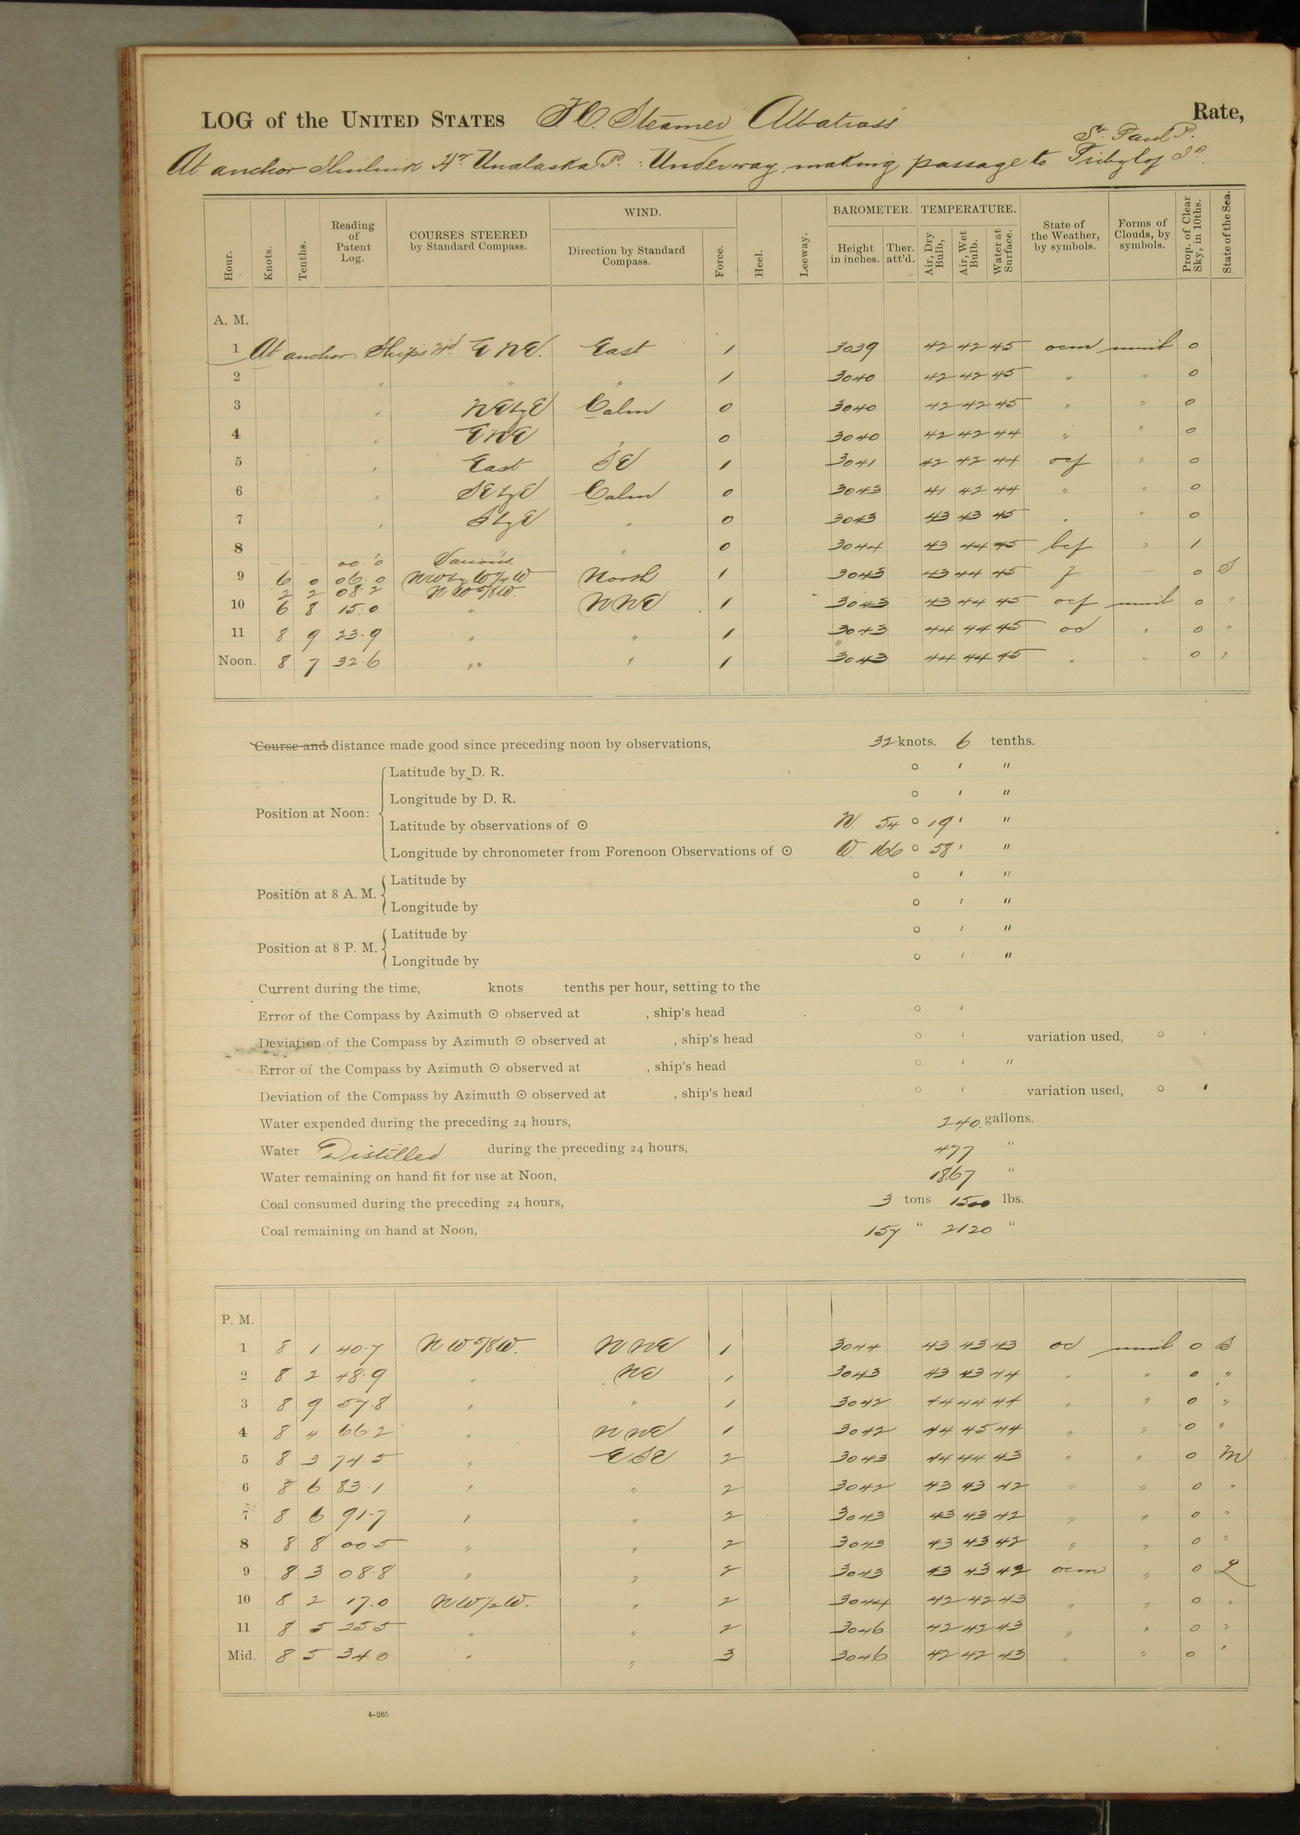 LOG of the UNITED STATES F.C. Steamer Albatross Rate,
St. Paul I.
At anchor Iliuliuk Hr. Unalaska I. : Underway, making passage to Pribylof Is.
Hour. Knots. Tenths. Reading of Patent Log. COURSES STEERED by Standard Compass. WIND. Direction by Standard Compass. Force. Heel. Leeway. BAROMETER. Height in inches. Ther. att'd. TEMPERATURE. Air, Dry Bulb, Air, Wet Bulb. Water at Surface. State of the Weather, by symbols. Forms of Clouds, by symbols. Prop. of Clear Sky, in 10ths. State of the Sea.
A. M.
1 At anchor. Ship's h'd ENE. East 1 3039 42 42 45 ocm nimb 0
2 " " " 1 3040 42 42 45 " " 0
3 " NEbyE Calm 0 3040 42 42 45 " " 0
4 " ENE " 0 3040 42 42 44 " " 0
5 " East SE 1 3041 42 42 44 ocf " 0
6 " SEbyE Calm 0 3043 41 42 44 " " 0
7 " SbyE " 0 3043 43 43 45 " " 0
8 " 0 3044 43 44 45 bcf " 1
— — 00.0 Various
9 6 0 06.0 NWbyW¼W North 1 3043 43 44 45 f — 0 S
2 2 08.2 NW⅝W.
10 6 8 15.0 " NNE 1 3043 43 44 45 ocf nimb 0 "
11 8 9 23.9 " " 1 3043 44 44 45 od " 0 "
Noon. 8 7 32.6 " " 1 3043 44 44 45 " " 0 "
Course and distance made good since preceding noon by observations, 32 knots. 6 tenths.
Position at Noon: Latitude by D. R. ° ' "
Longitude by D. R. ° ' "
Latitude by observations of ☉ N. 54 ° 19 ' "
Longitude by chronometer from Forenoon Observations of ☉ W. 166 ° 58 ' "
Position at 8 A. M. Latitude by ° ' "
Longitude by ° ' "
Position at 8 P. M. Latitude by ° ' "
Longitude by ° ' "
Current during the time, knots tenths per hour, setting to the
Error of the Compass by Azimuth ☉ observed at , ship's head ° '
Deviation of the Compass by Azimuth ☉ observed at , ship's head ° ' variation used, ° '
Error of the Compass by Azimuth ☉ observed at , ship's head ° ' "
Deviation of the Compass by Azimuth ☉ observed at , ship's head ° ' variation used, ° '
Water expended during the preceding 24 hours, 240 gallons.
Water Distilled during the preceding 24 hours, 477 "
Water remaining on hand fit for use at Noon, 1867 "
Coal consumed during the preceding 24 hours, 3 tons 1500 lbs.
Coal remaining on hand at Noon, 157 " 2120 "
P. M.
1 8 1 40.7 NW⅝W. NNE 1 3044 43 43 43 od nimb 0 S
2 8 2 48.9 " NE 1 3043 43 43 44 " " 0 "
3 8 9 57.8 " " 1 3042 44 44 44 " " 0 "
4 8 " 66.2 " NNE 1 3042 44 45 44 " " 0 "
5 8 3 74.5 " ESE 2 3043 44 44 43 " " 0 M
6 8 6 83.1 " " 2 3042 43 43 42 " " 0 "
7 8 6 91.7 " " 2 3043 43 43 42 " " 0 "
8 8 8 00.5 " " 2 3043 43 43 42 " " 0 "
9 8 3 08.8 " " 2 3043 43 43 42 ocm " 0 L
10 8 2 17.0 NW½W. " 2 3044 42 42 43 " " 0 "
11 8 5 25.5 " " 2 3046 42 42 43 " " 0 "
Mid. 8 5 34.0 " " 3 3046 42 42 43 " " 0 "
4-265